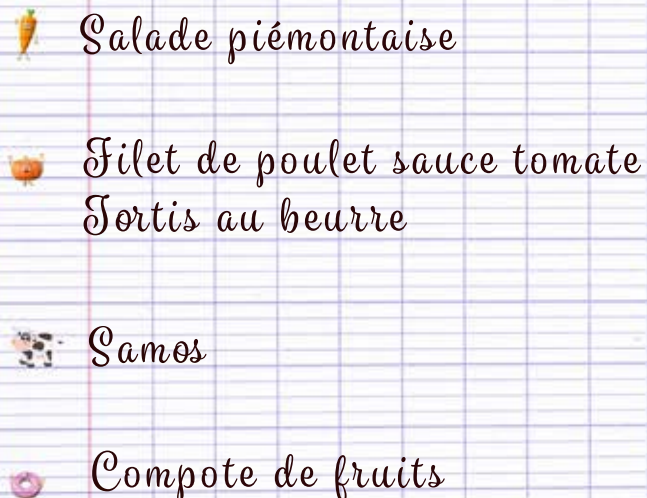 Salade piémontaise
Filet de poulet sauce tomate
Tortis au beurre
Samos
Compote de fruits